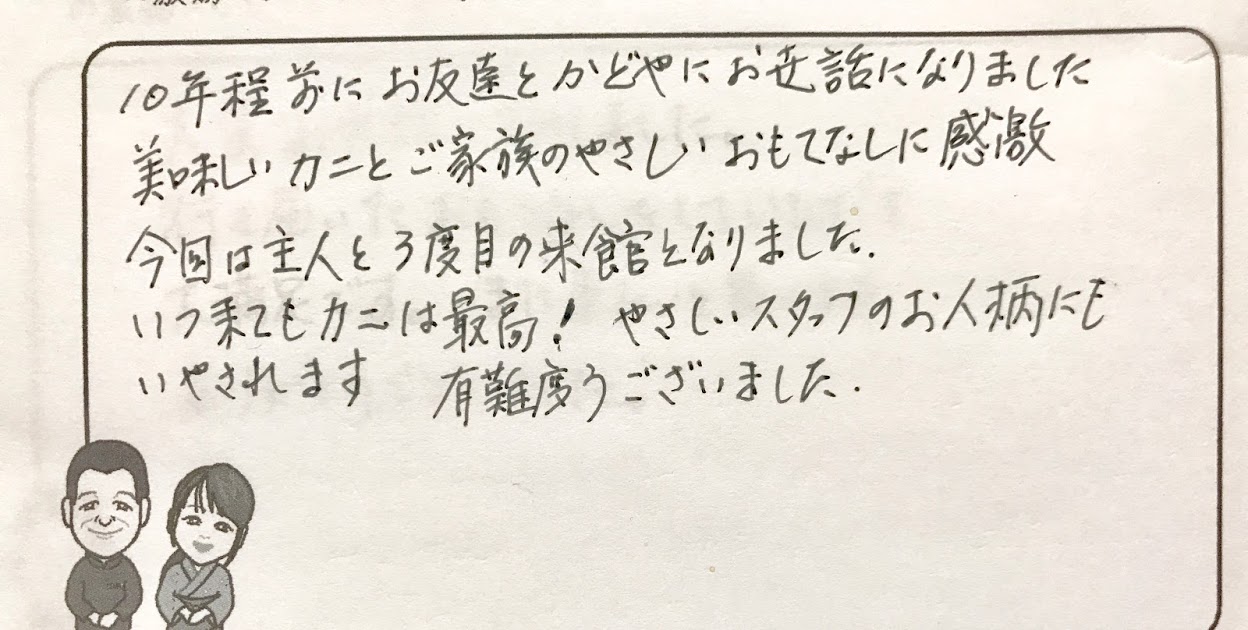 10年程前にお友達とかどやにお世話になりました
美味しいカニとご家族のやさしいおもてなしに感激
今回は主人と3度目の来館となりました.
いつ来てもカニは最高! やさしいスタッフのお人柄にも
いやされます 有難度うございました.